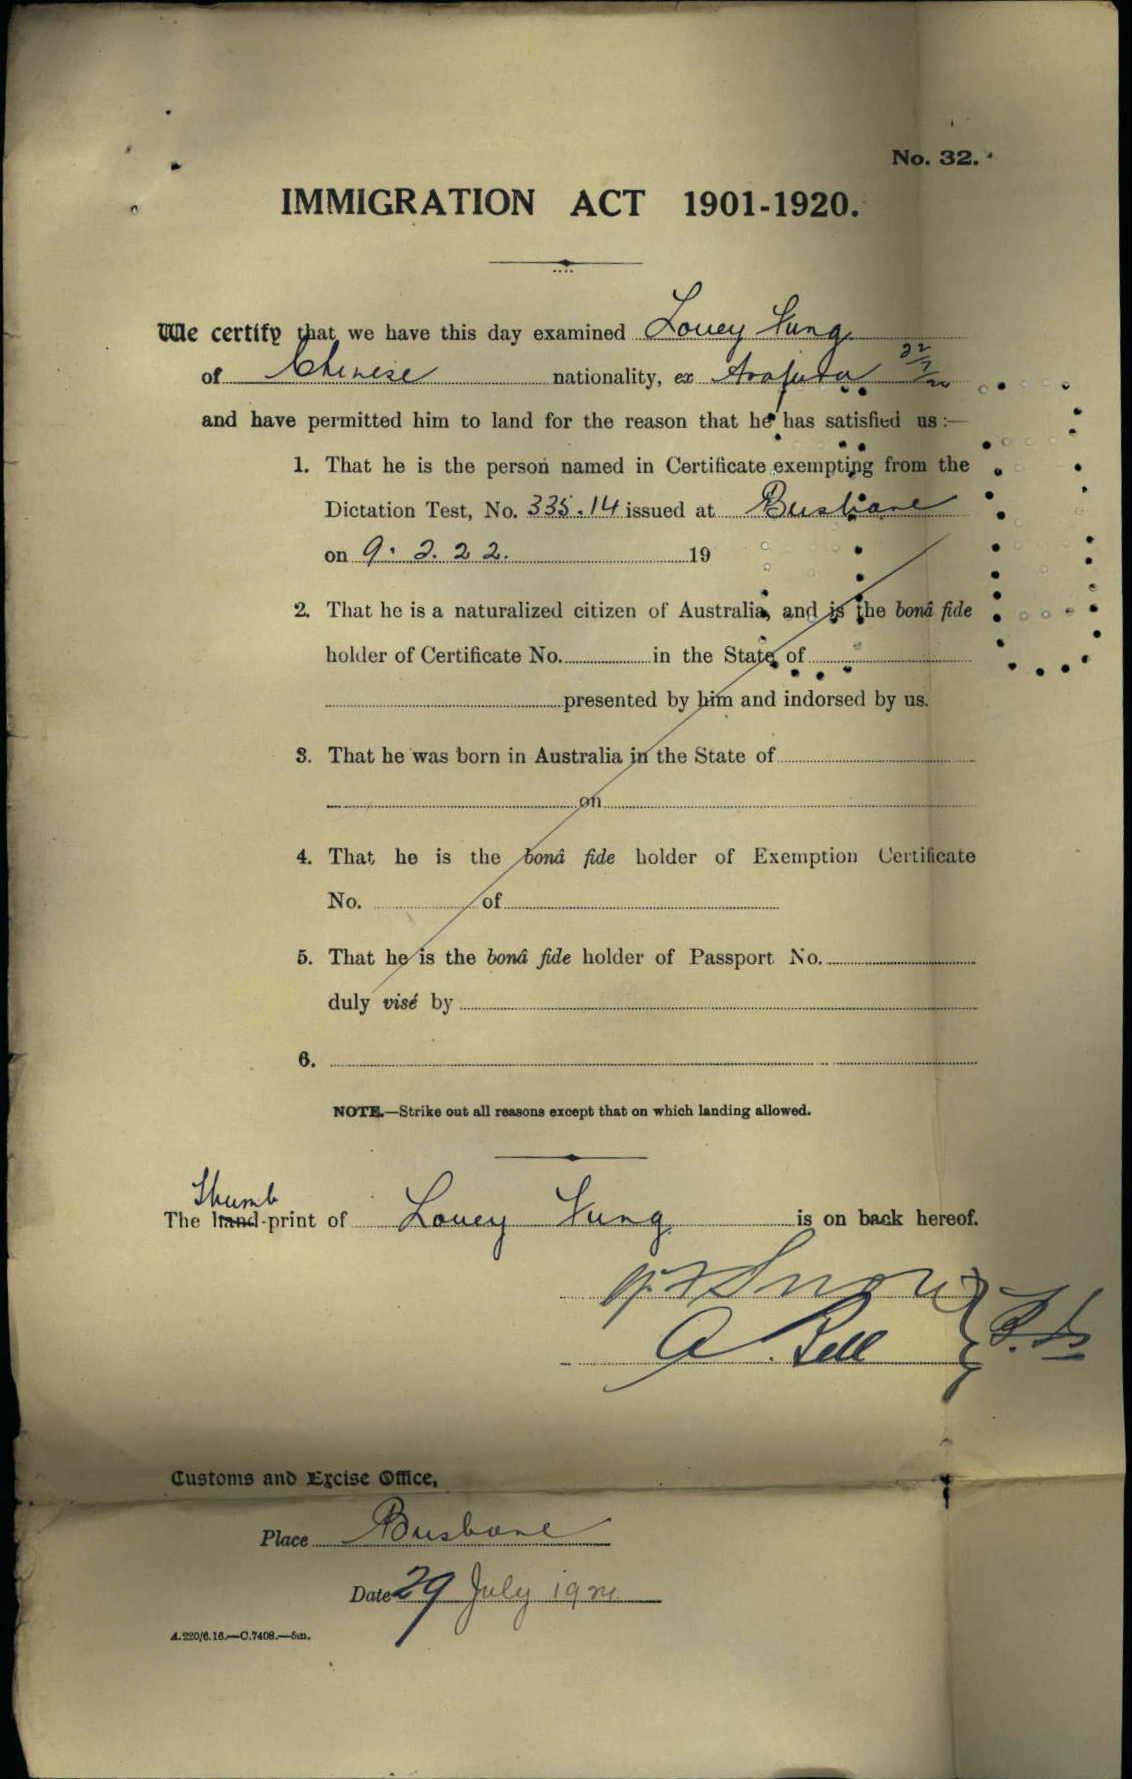 No. 32.
IMMIGRATION ACT 1901-1920.
We certify that we have this day examined Louey Fung
of Chinese nationality, ex Arafura 22/7/24
and have permitted him to land for the reason that he has satisfied us :—
1. That he is the person named in Certificate exempting from the
Dictation Test, No. 335.14 issued at Brisbane
on 9. 2. 22. 19
2. That he is a naturalized citizen of Australia, and is the bonâ fide
holder of Certificate No. in the State of
presented by him and indorsed by us.
3. That he was born in Australia in the State of
on
4. That he is the bonâ fide holder of Exemption Certificate
No. of
5. That he is the bonâ fide holder of Passport No.
duly visé by
6.
NOTE.—Strike out all reasons except that on which landing allowed.
Thumb
The hand-print of Louey Fung is on back hereof.
Snow
A. Bell
Customs and Excise Office,
Place Brisbane
Date 29 July 1924
A.220/6.16.—C.7408.—5m.